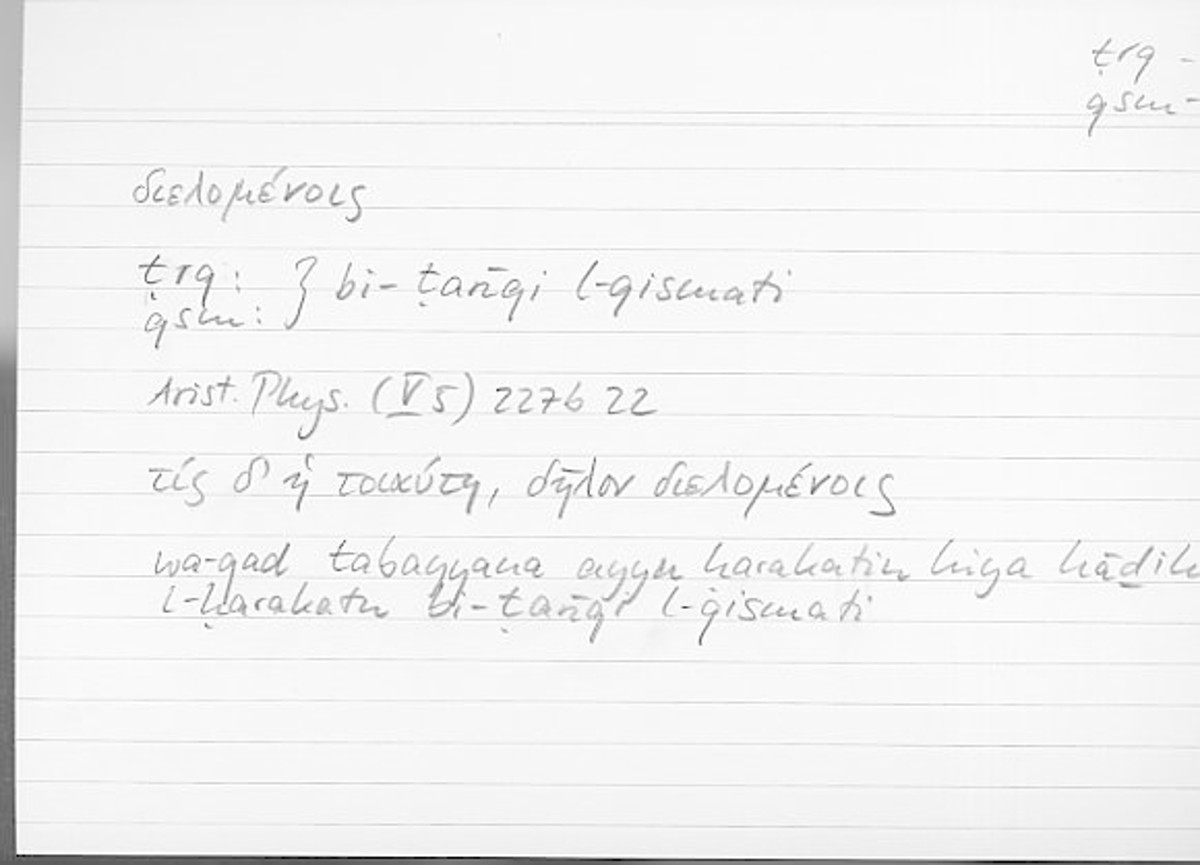 ṭrq -
qsm -
διελομένοις
ṭrq: } bi-ṭarīqi l-qismati
qsm:
Arist. Phys. (V 5) 227b 22
τίς δ' ἡ τοιαύτη, δῆλον διελομένοις
wa-qad tabayyana ayyu ḥarakatin hiya hāḏih
l-ḥarakatu bi-ṭarīqi l-qismati